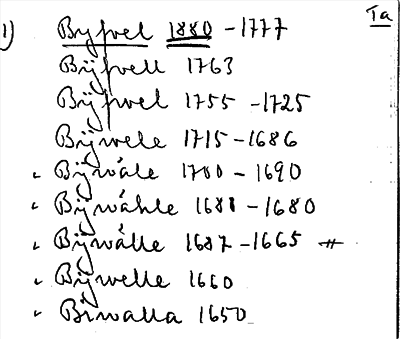 Ta
1) Byfvel 1880 - 1777
Bÿfvell 1763
Bÿfvel 1755 - 1725
Bÿwele 1715 - 1686
Bÿwåle 1700 - 1690
Bÿwåhle 1688 - 1680
Bÿwålle 1687 - 1665 #
Bÿwelle 1660
Biwalla 1650